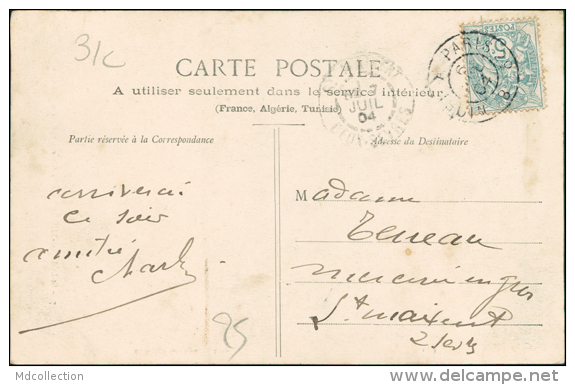 31c
CARTE POSTALE
A utiliser seulement dans le service intérieur
(France, Algérie, Tunisie)
PARIS
5
POSTES
7
JUIL
04
DEUX-SÈVRES
Partie réservée à la Correspondance
Adresse du Destinataire
arriverai
ce soir
amitié
Charles
Madame
Teneau
mercerie en gros
St maixent
2 Sèvres
25
Mdcollection
http://www.delcampe.net